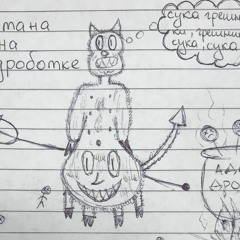 тана
на
дроботке
сука грешни
ки, грешник
сука, сука
АД
ДРО